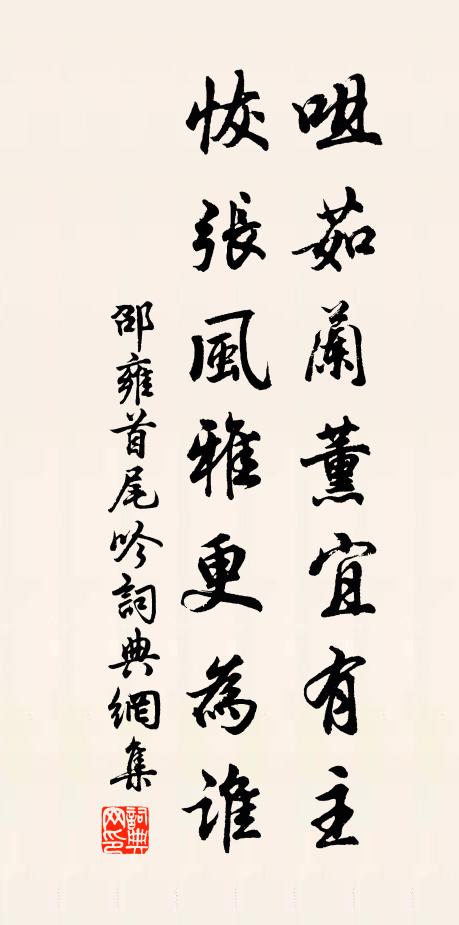 咀茹蘭薰宜有主
恢張風雅更為誰
邵雍首尾吟詞典網集
詞典網印